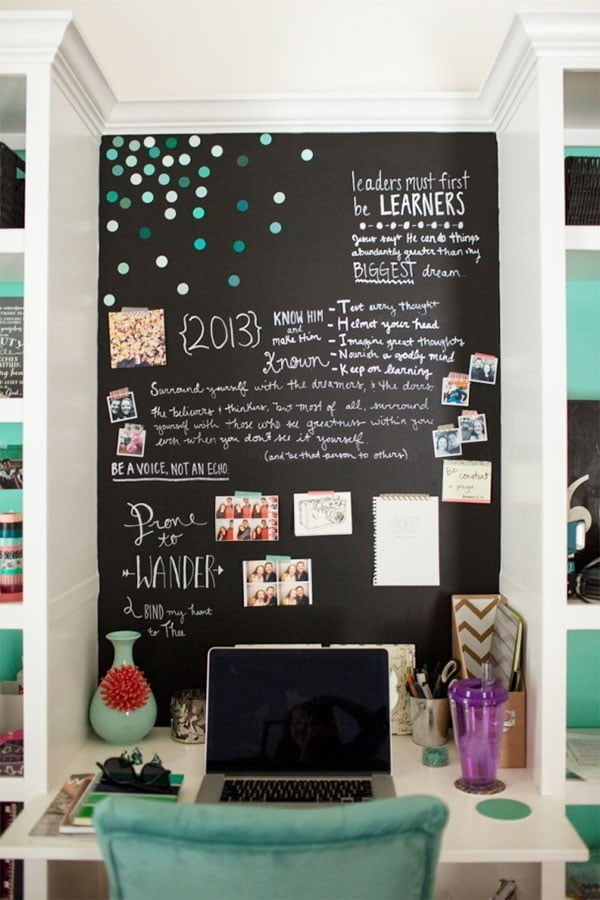 leaders must first
be LEARNERS
Jesus says He can do things
abundantly greater than my
BIGGEST dream.
{2013}
KNOW HIM
and
make Him
Known
- Test every thought
- Helmet your head
- Imagine great thoughts
- Nourish a godly mind
- Keep on learning
Surround yourself with the dreamers, & the doers,
the believers & thinkers, but most of all, surround
yourself with those who see greatness within you
even when you don't see it yourself.
(and be that person to others)
BE A VOICE, NOT AN ECHO.
Be
constant
in prayer
Prone
to
WANDER
BIND my heart
to Thee